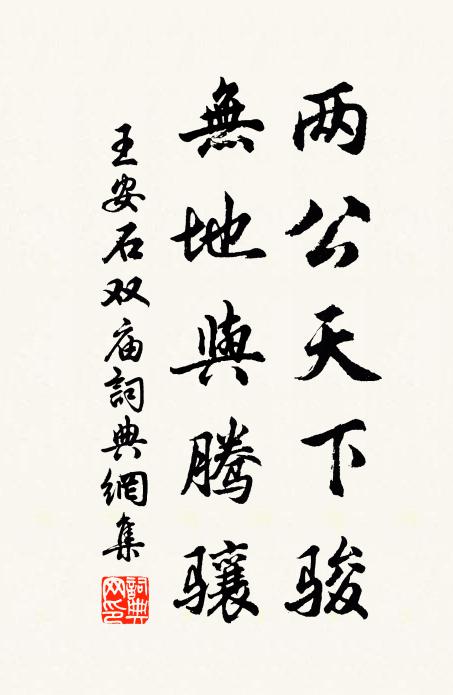 两公天下骏
無地與腾骧
王安石双庙詞典網集
詞典網印